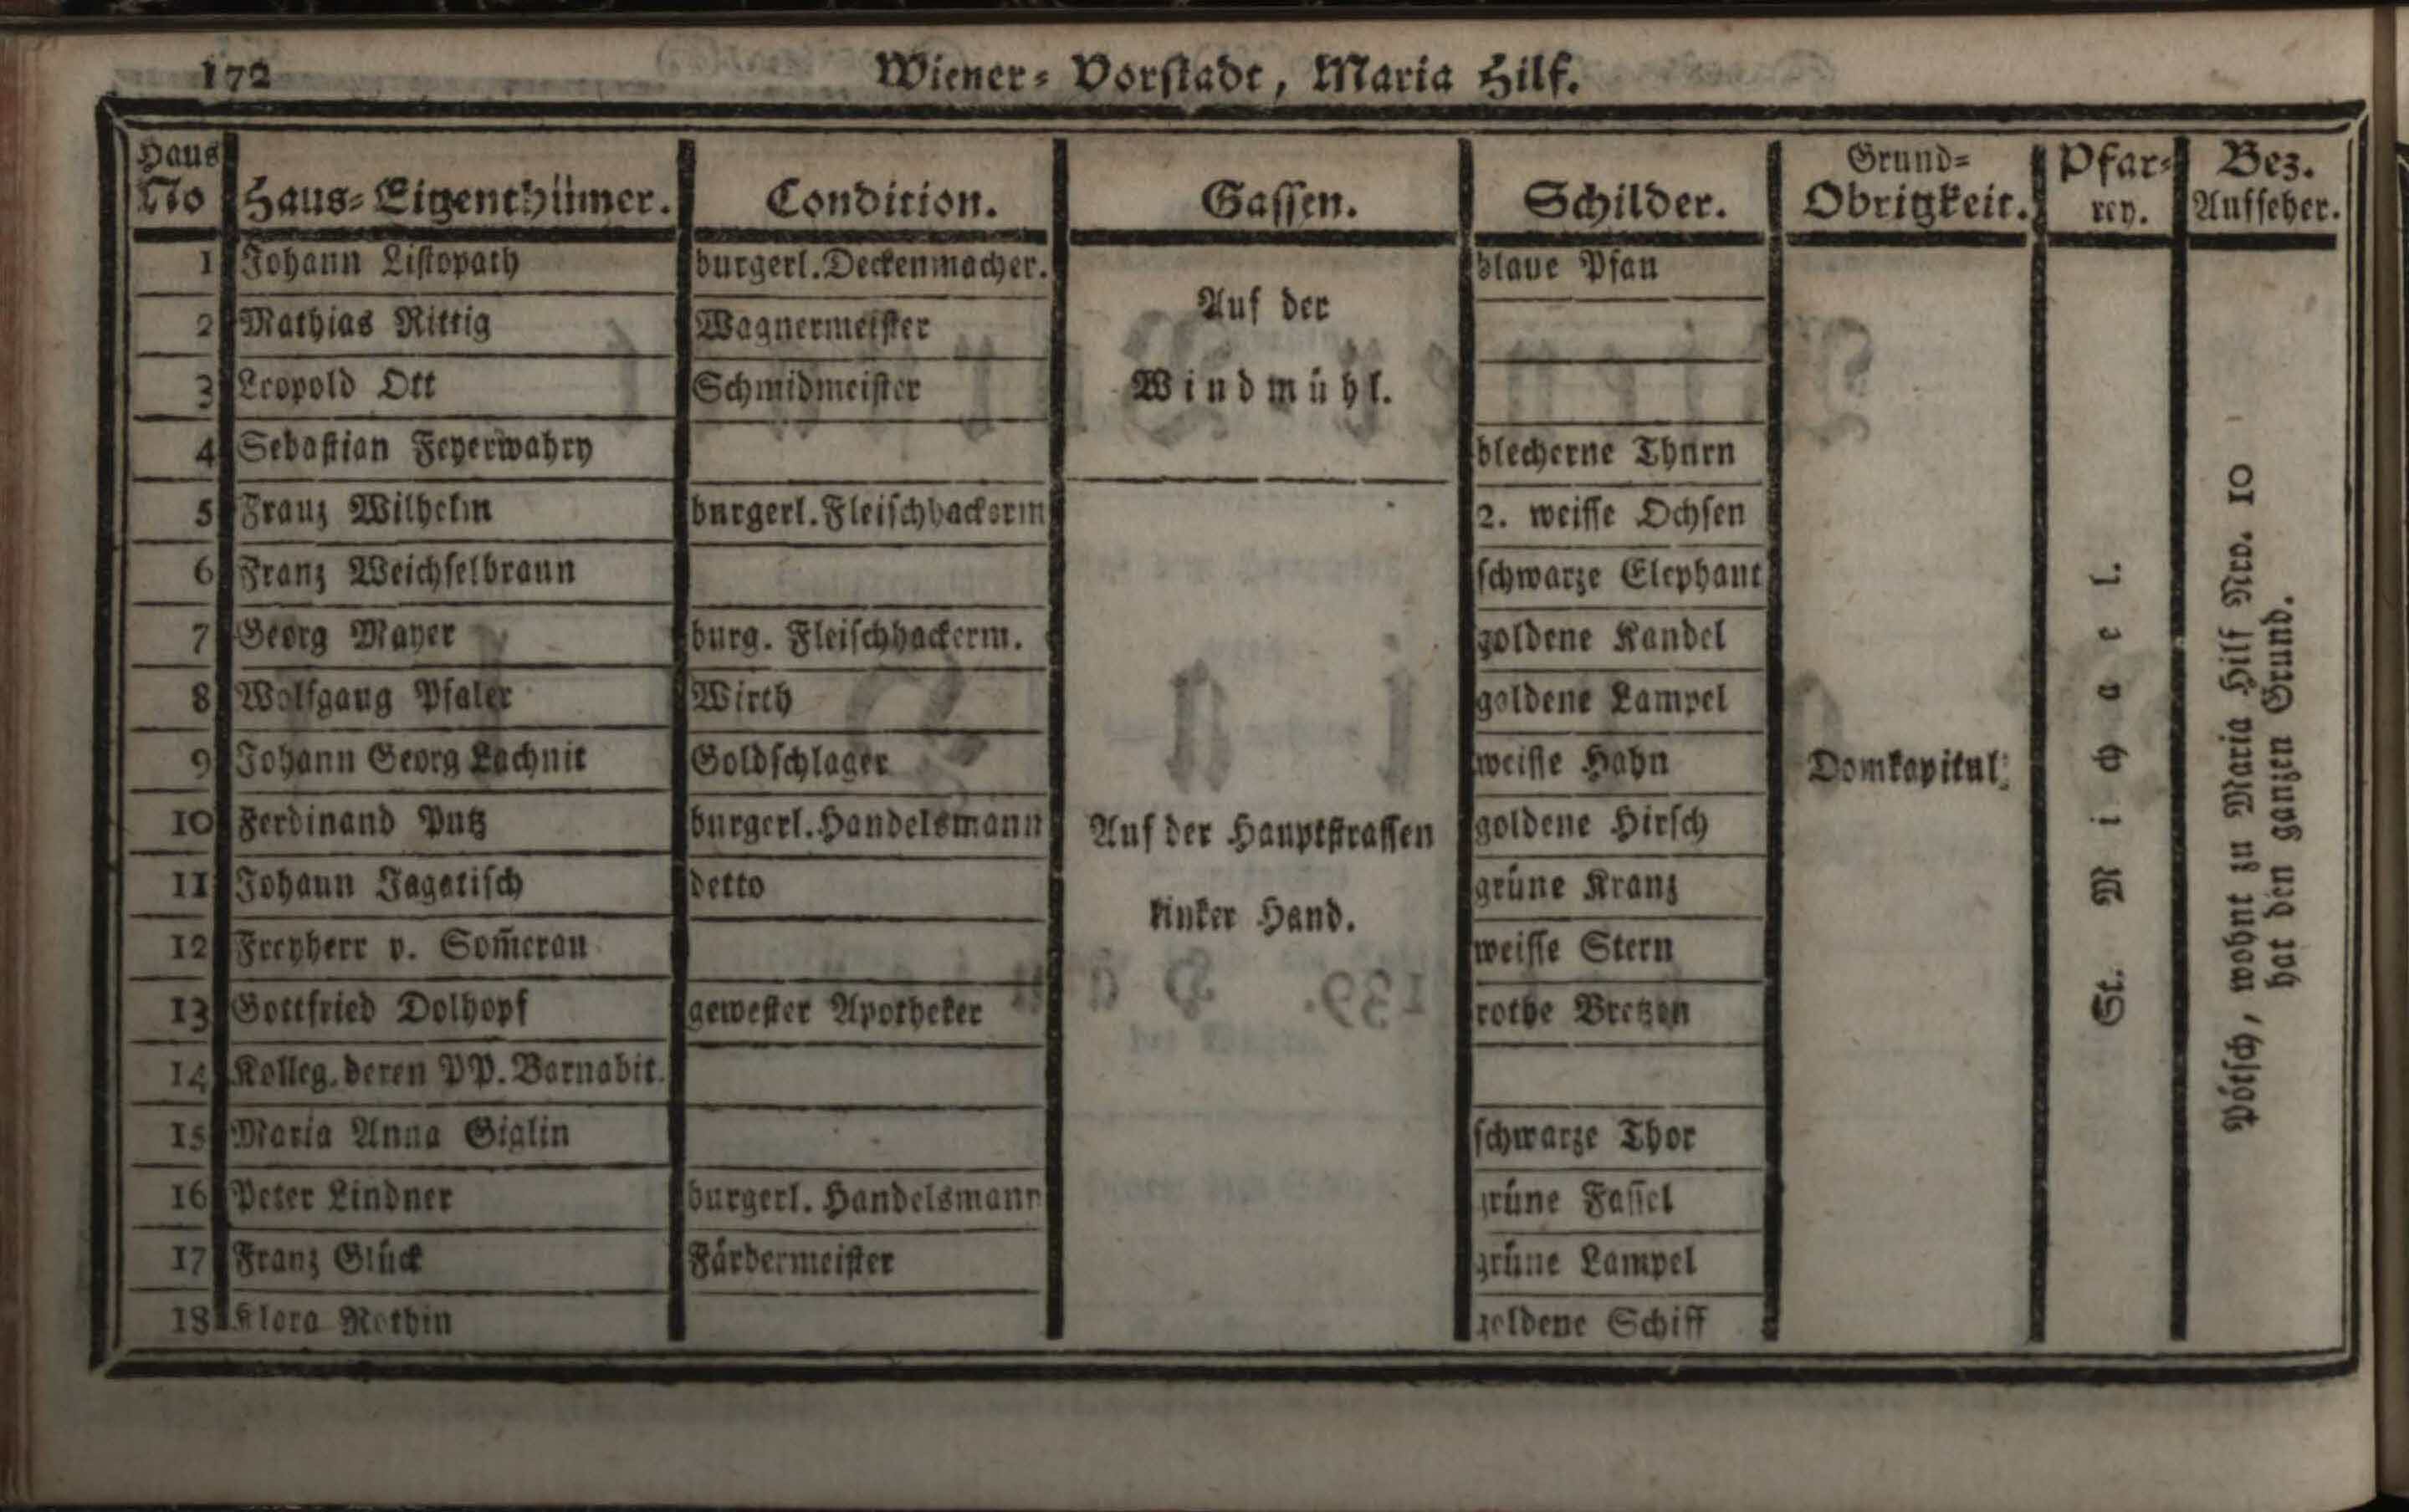 172
Wiener- Vorstadt, Maria Hilf.
Haus No Haus-Eigenthümer. Condition. Gassen. Schilder. Grund-Obrigkeit. Pfarrey. Bez. Aufseher.
1 Johann Listopath burgerl. Deckenmacher. blaue Pfau
2 Mathias Rittig Wagnermeister
3 Leopold Ott Schmidmeister
4 Sebastian Feyerwahry blecherne Thurn
Auf der
Windmühl.
5 Franz Wilhelm burgerl. Fleischhackerm 2. weisse Ochsen
6 Franz Weichselbraun schwarze Elephant
7 Georg Mayer burg. Fleischhackerm. goldene Kandel
8 Wolfgang Pfaler Wirth goldene Lampel
9 Johann Georg Lachnit Goldschlager weisse Hahn
10 Ferdinand Putz burgerl. Handelsmann goldene Hirsch
11 Johann Jagatisch detto grüne Kranz
12 Freyherr v. Som̄erau weisse Stern
13 Gottfried Dolhopf gewester Apotheker rothe Bretzen
14 Kolleg. deren PP. Barnabit.
15 Maria Anna Giglin schwarze Thor
16 Peter Lindner burgerl. Handelsmann grüne Fassel
17 Franz Glück Färbermeister grüne Lampel
18 Klara Rothin goldene Schiff
Auf der Hauptstrassen
linker Hand.
Domkapitul.
St. Michael.
Pötsch, wohnt zu Maria Hilf Nro. 10
hat den ganzen Grund.